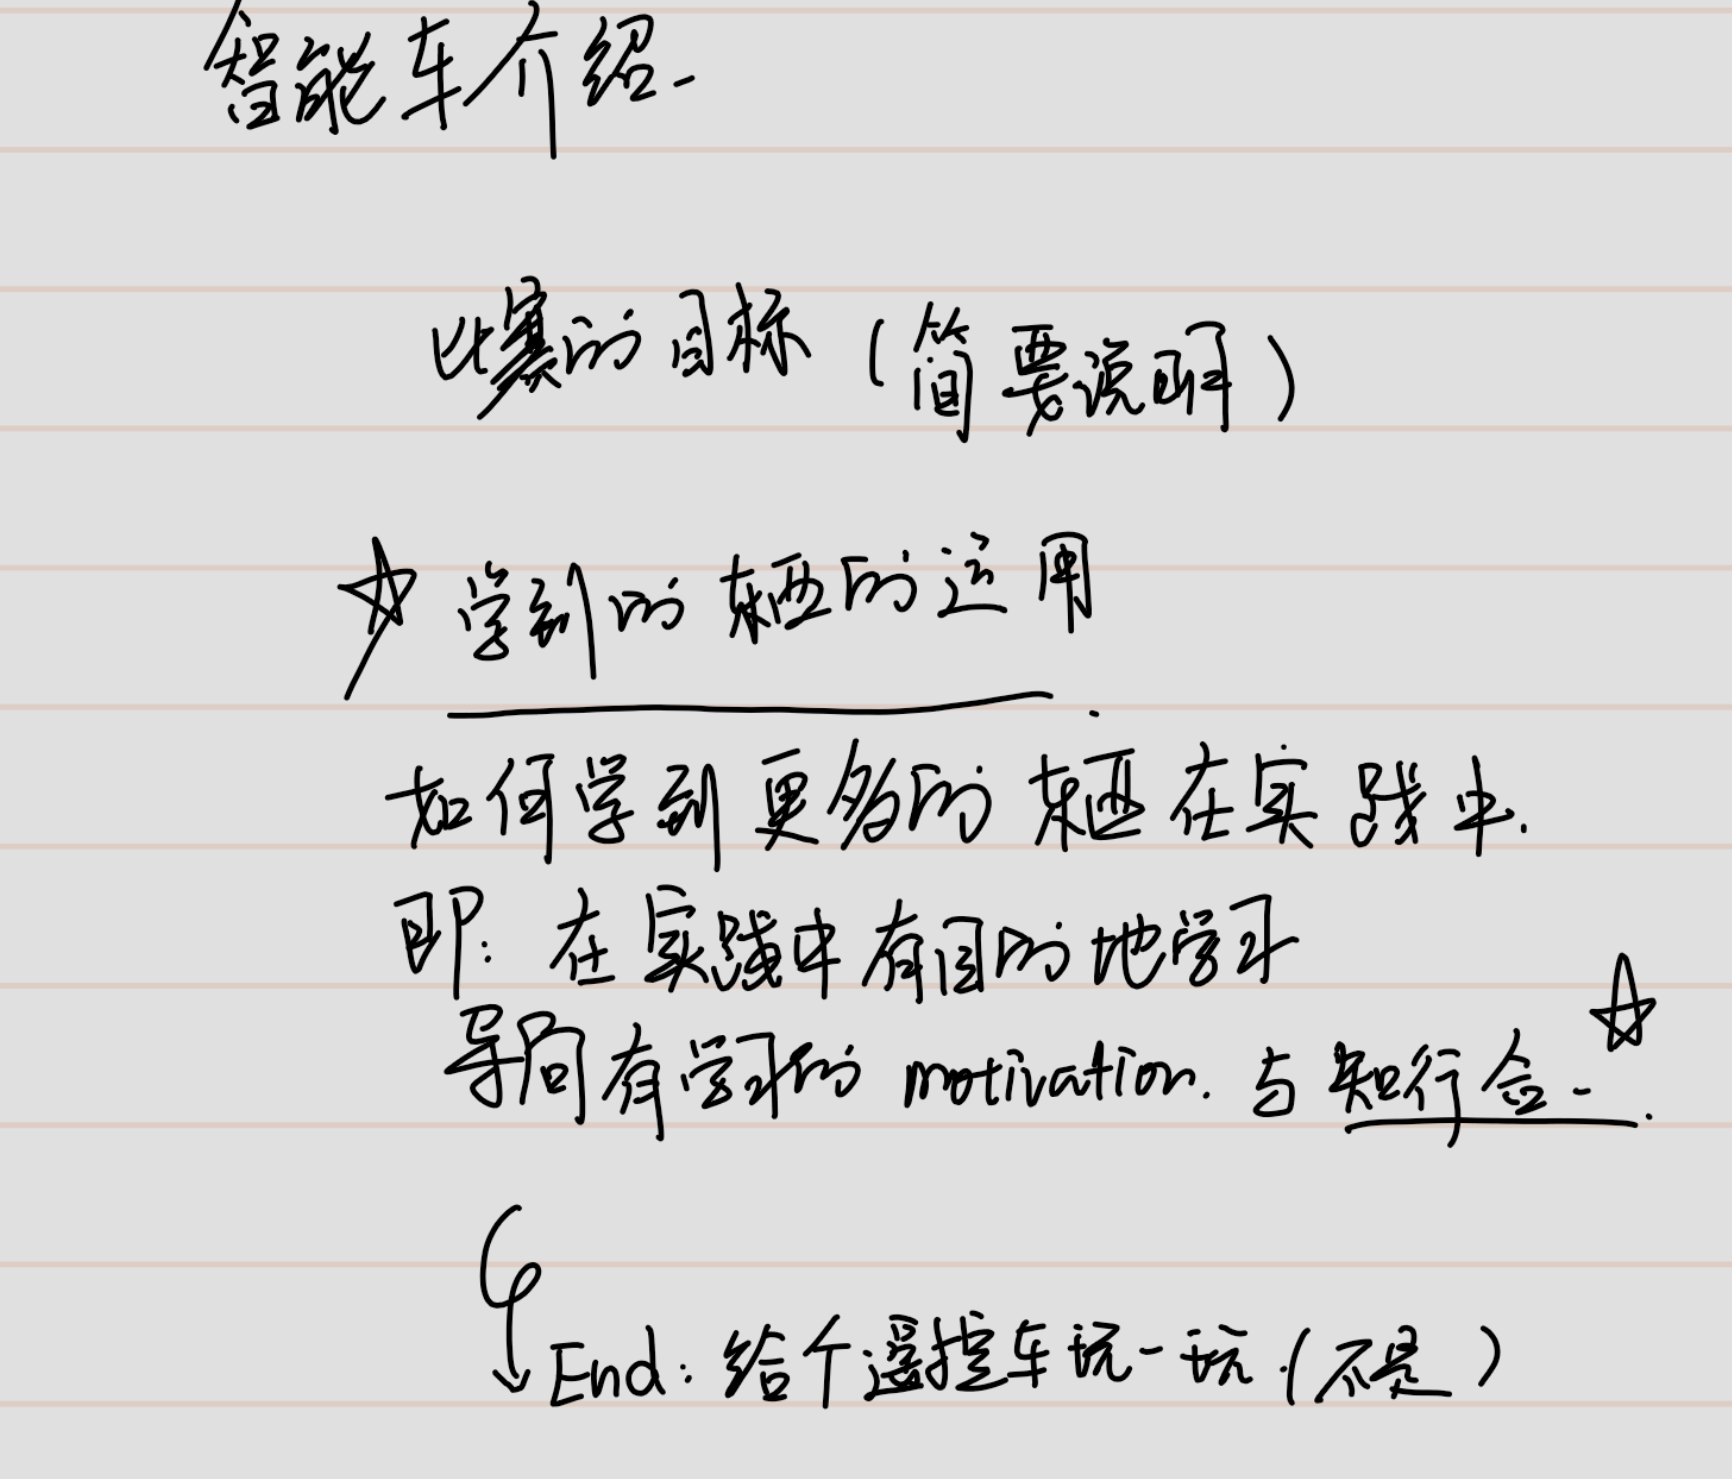 智能车介绍.
比赛的目标（简要说明）
☆ 学到的东西的运用.
如何学到更多的东西在实践中.
即: 在实践中有目的地学习
导向有学习的 motivation. 与知行合一. ☆
End: 给个遥控车玩一玩.(不是)